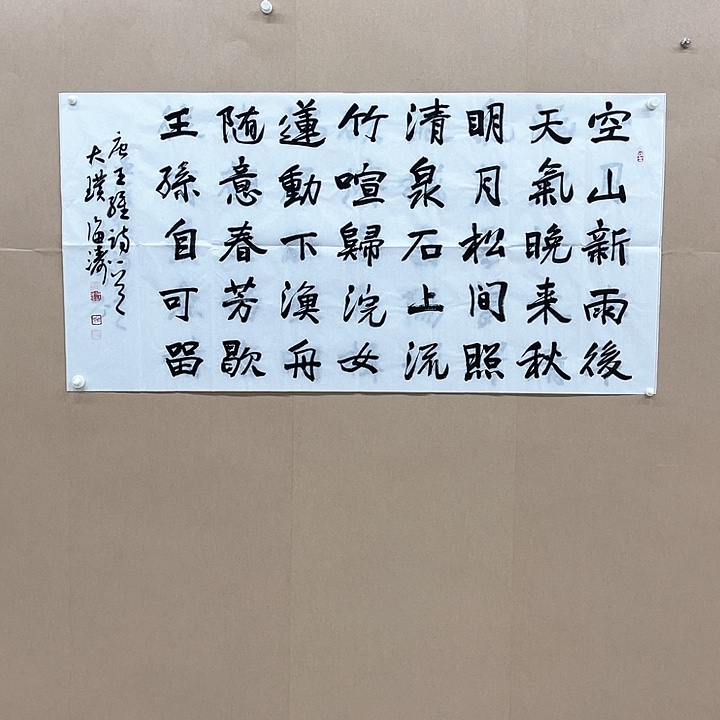 空山新雨後
天氣晚来秋
明月松間照
清泉石上流
竹喧歸浣女
蓮動下漁舟
随意春芳歇
王孫自可留
唐王維詩
大璞海濤